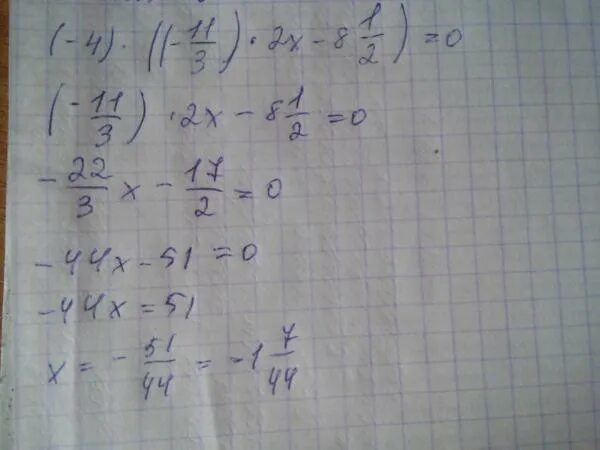 (-4) · ((-11/3) · 2x - 8 1/2) = 0
(-11/3) · 2x - 8 1/2 = 0
-22/3 x - 17/2 = 0
-44x - 51 = 0
-44x = 51
x = -51/44 = -1 7/44